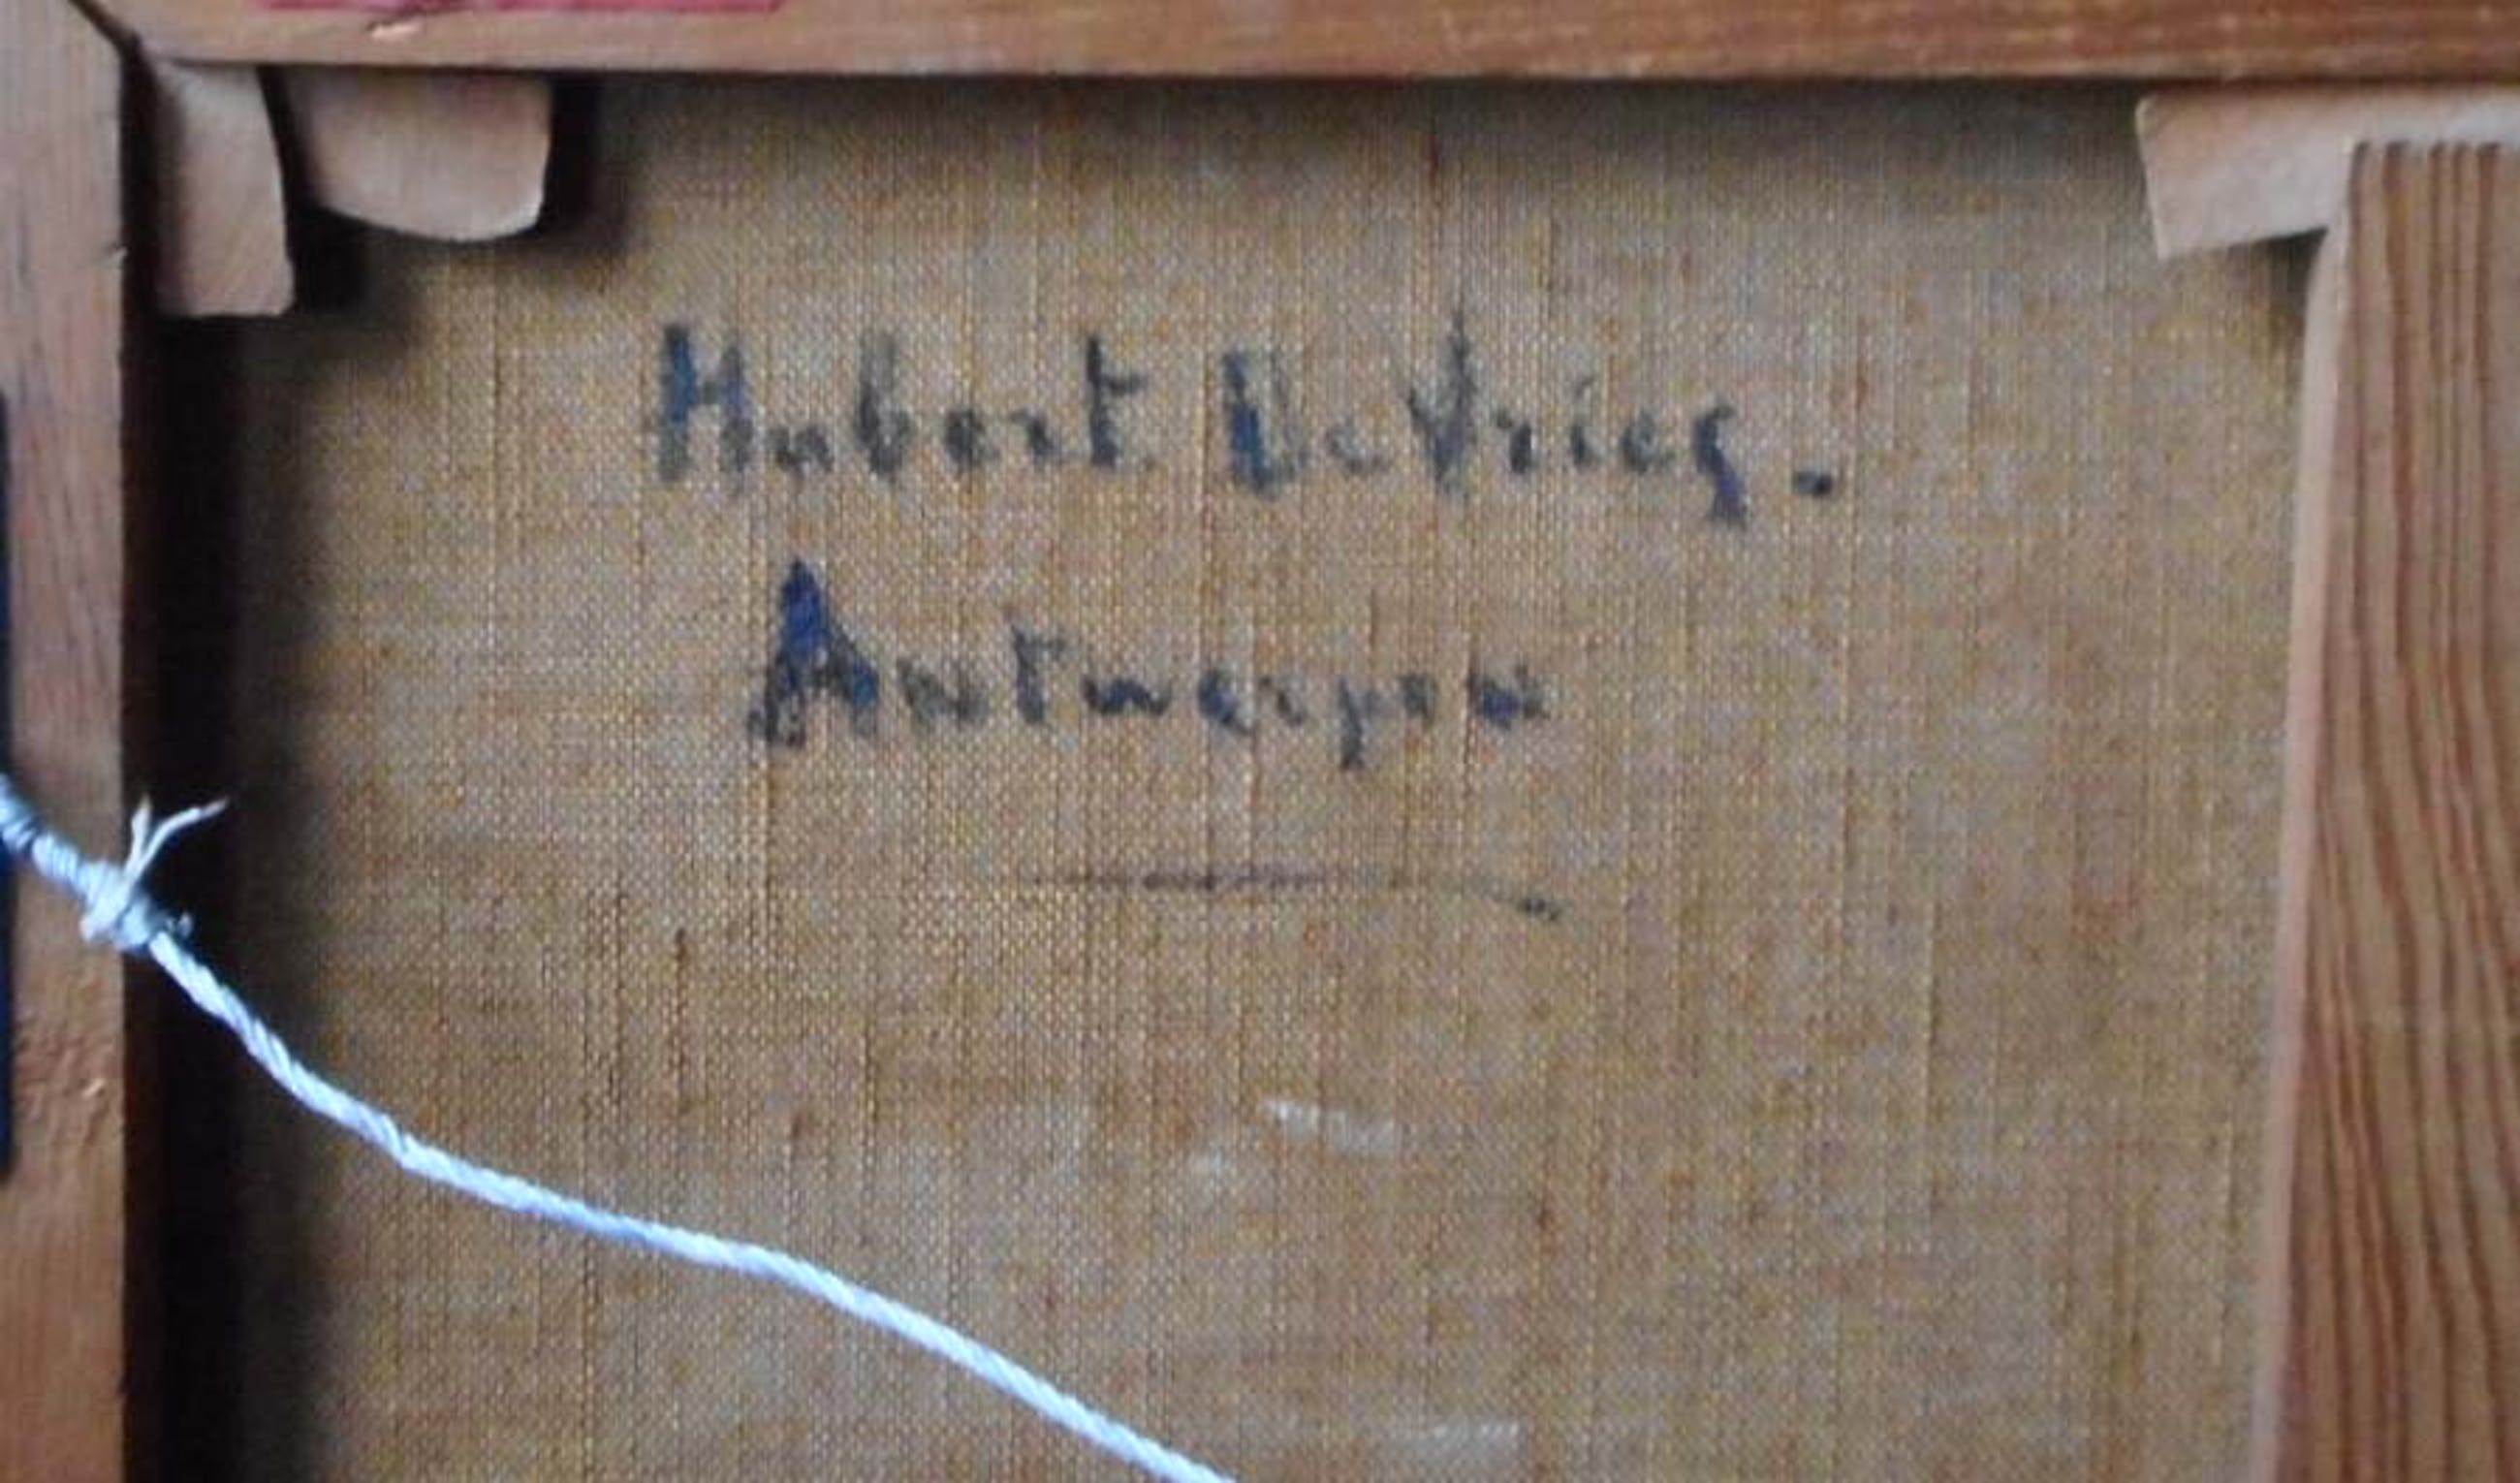 Hubert De Vries.
Antwerpen